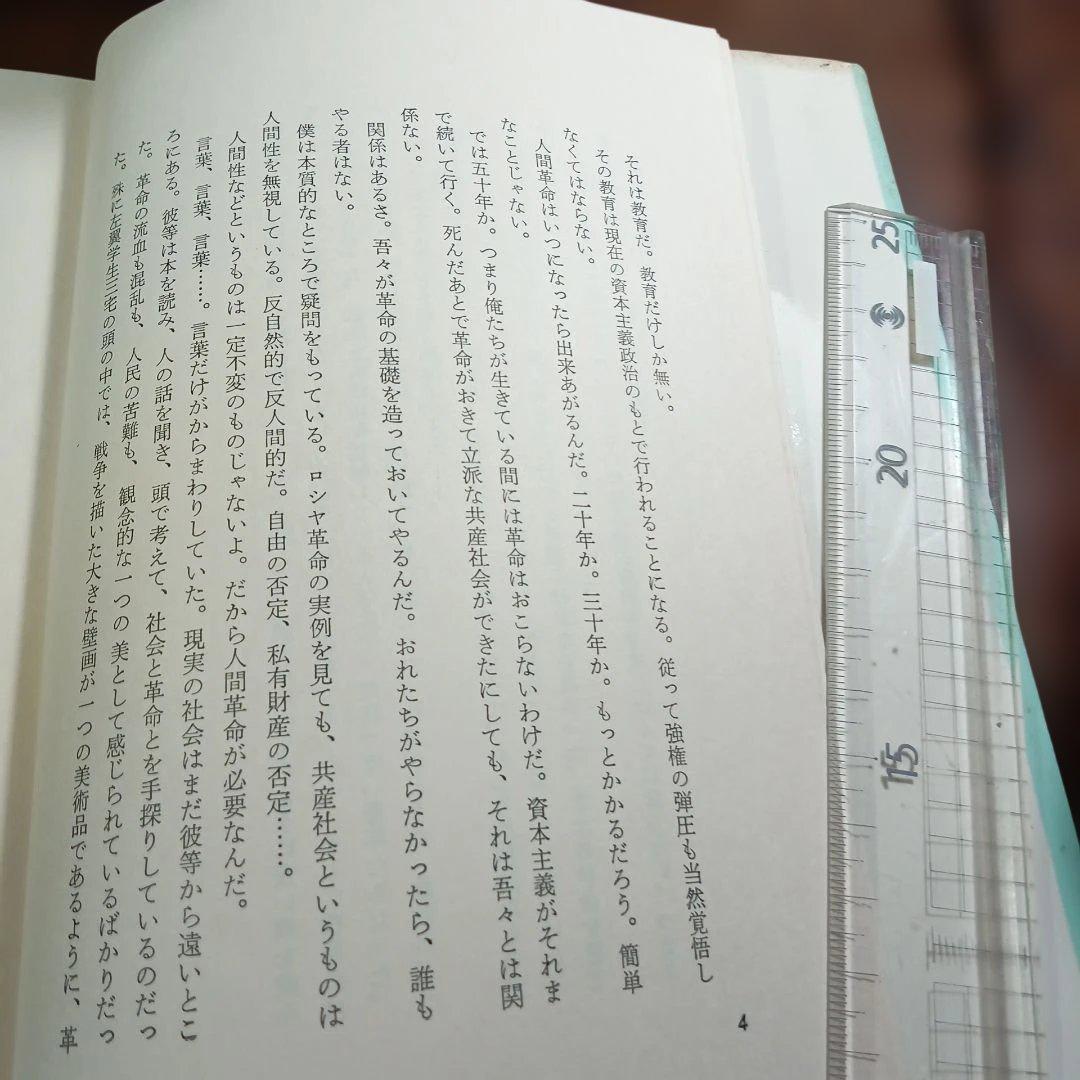 それは教育だ。教育だけしか無い。
その教育は現在の資本主義政治のもとで行われることになる。従って強権の弾圧も当然覚悟し
なくてはならない。
人間革命はいつになったら出来あがるんだ。二十年か。三十年か。もっとかかるだろう。簡単
なことじゃない。
では五十年か。つまり俺たちが生きている間には革命はおこらないわけだ。資本主義がそれま
で続いて行く。死んだあとで革命がおきて立派な共産社会ができたにしても、それは吾々とは関
係ない。
関係はあるさ。吾々が革命の基礎を造っておいてやるんだ。おれたちがやらなかったら、誰も
やる者はない。
僕は本質的なところで疑問をもっている。ロシヤ革命の実例を見ても、共産社会というものは
人間性を無視している。反自然的で反人間的だ。自由の否定、私有財産の否定……。
人間性などというものは一定不変のものじゃないよ。だから人間革命が必要なんだ。
言葉、言葉、言葉……。言葉だけがからまわりしていた。現実の社会はまだ彼等から遠いとこ
ろにある。彼等は本を読み、人の話を聞き、頭で考えて、社会と革命とを手探りしているのだっ
た。革命の流血も混乱も、人民の苦難も、観念的な一つの美として感じられているばかりだっ
た。殊に左翼学生三宅の頭の中では、戦争を描いた大きな壁画が一つの美術品であるように、革
4
25
20
15